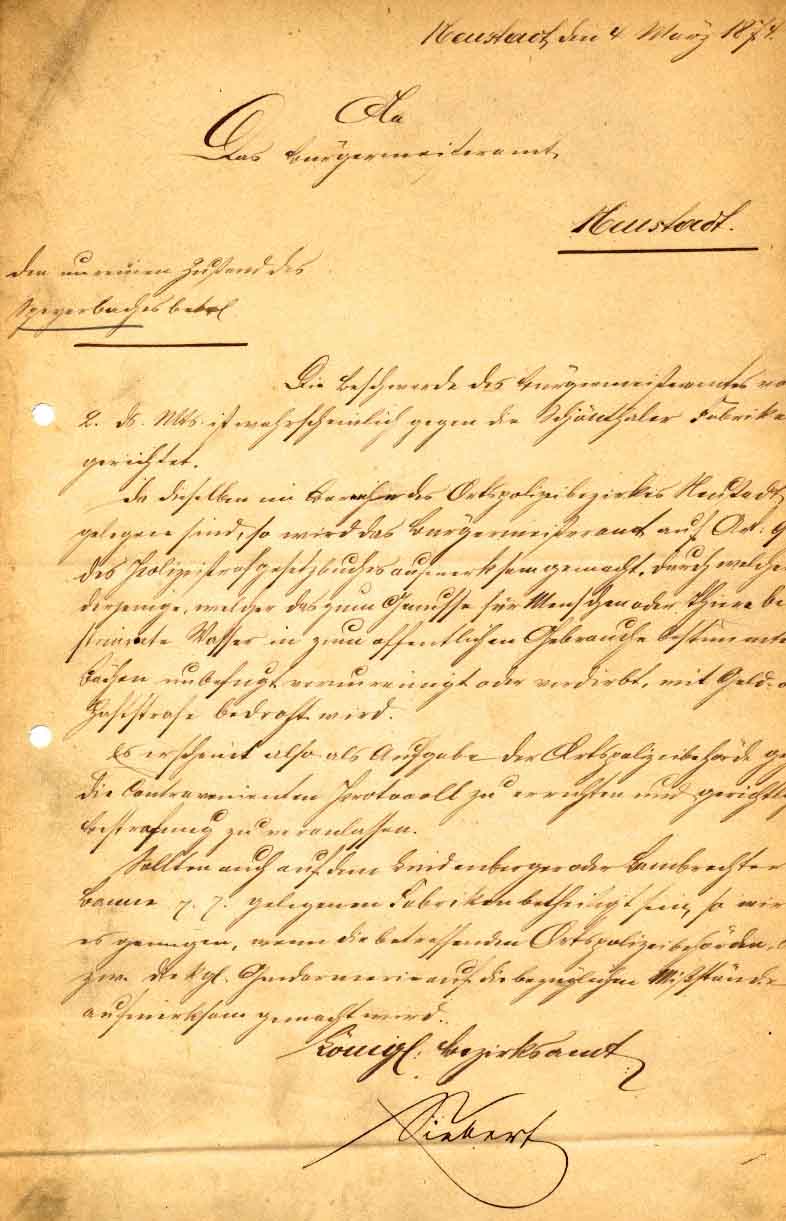 Neustadt, den 4 März 1874.
An
Das Bürgermeisteramt
Neustadt.
den unreinen Zustand des
Speyerbaches betrf.
Die Beschwerde des Bürgermeisteramtes vo
2. ds. Mts. ist wahrscheinlich gegen die Schönthaler Fabrike
gerichtet.
Da dieselben im des Ortspolizeibezirkes Neustadt
gelegen sind, so wird das Bürgermeisteramt auf Art. 9
des Polizeistrafgesetzbuches aufmerksam gemacht, durch welche
derjenige, welcher das zum Genusse für Menschen oder Thiere be
stimmte Wasser in zum öffentlichen Gebrauche bestimmte
Bächen unbefugt verunreinigt oder verdirbt, mit Geld- o
Haftstrafe bedroht wird.
Es erscheint also als Aufgabe der Ortspolizeibehörde ge
die Contravenienten Protocoll zu errichten und gerichtl
Bestrafung zu veranlassen.
Sollten auch auf dem Lindenberger oder Lambrechter
Banne gelegenen Fabriken betheiligt sein, so wir
es genügen, wenn die betreffenden Ortspolizeibehörden, b
zw. die kgl. Gendarmerie auf die bezüglichen Mißstände
aufmerksam gemacht werd.
Königl. Bezirksamt
Siebert